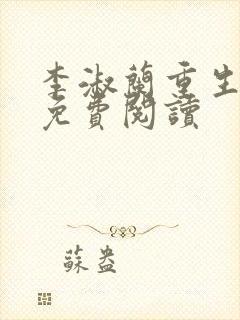 李淑蘭重生
免費閱讀
蘇盎